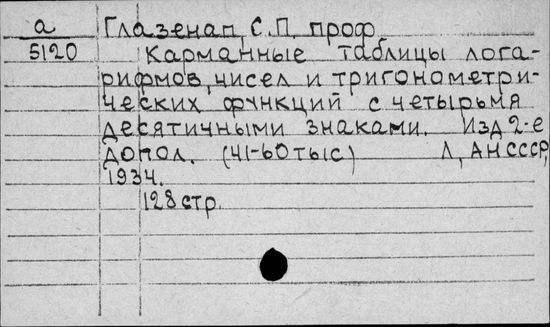 а Глазенап, С.П. проф.
5120 Карманные таблицы лога-
рифмов, чисел и тригонометри-
ческих функций с четырьмя
десятичными знаками. Изд 2-е
допол. (41-60 тыс) Л, АНСССР,
1934.
128 стр.